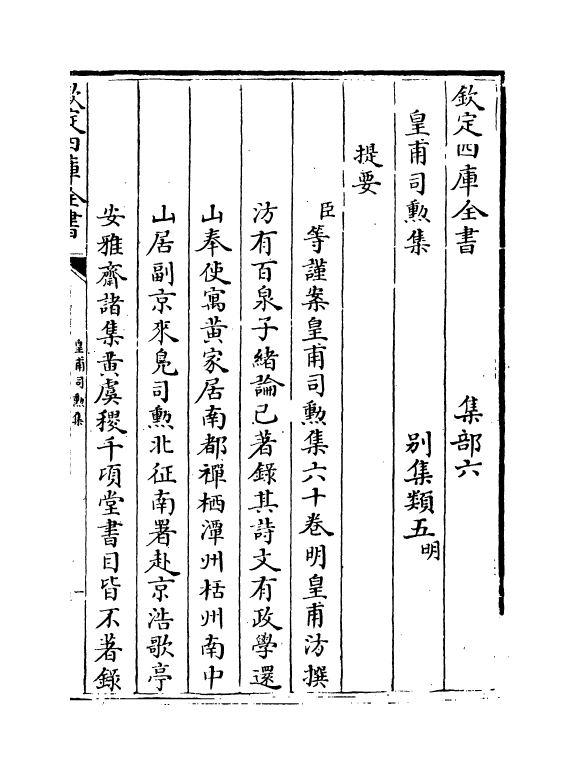 欽定四庫全書 集部六
皇甫司勲集 别集類五明
提要
臣等謹案皇甫司勲集六十卷明皇甫汸撰
汸有百泉子緒論已著錄其詩文有政學還
山奉使寓黄家居南都禪栖澶州栝州南中
山居副京來鳬司勲北征南署赴京浩歌亭
安雅齋諸集黄虞稷千頃堂書目皆不著錄
欽定四庫全書
皇甫司勲集
一